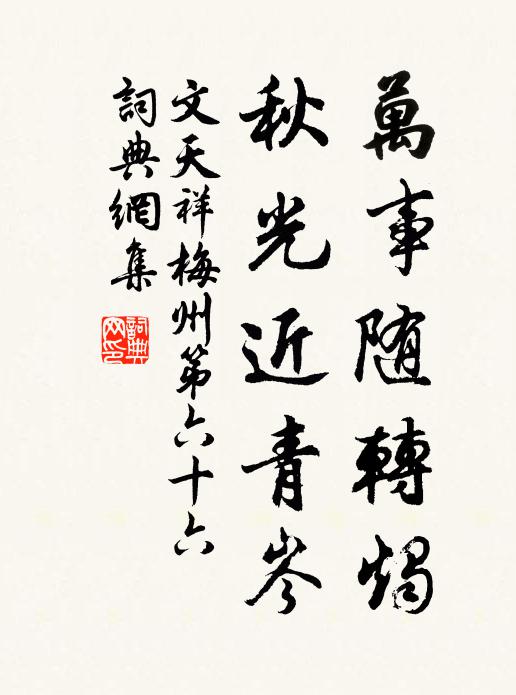 萬事随轉燭
秋光近青岑
文天祥梅州第六十六
詞典網集
詞典網印